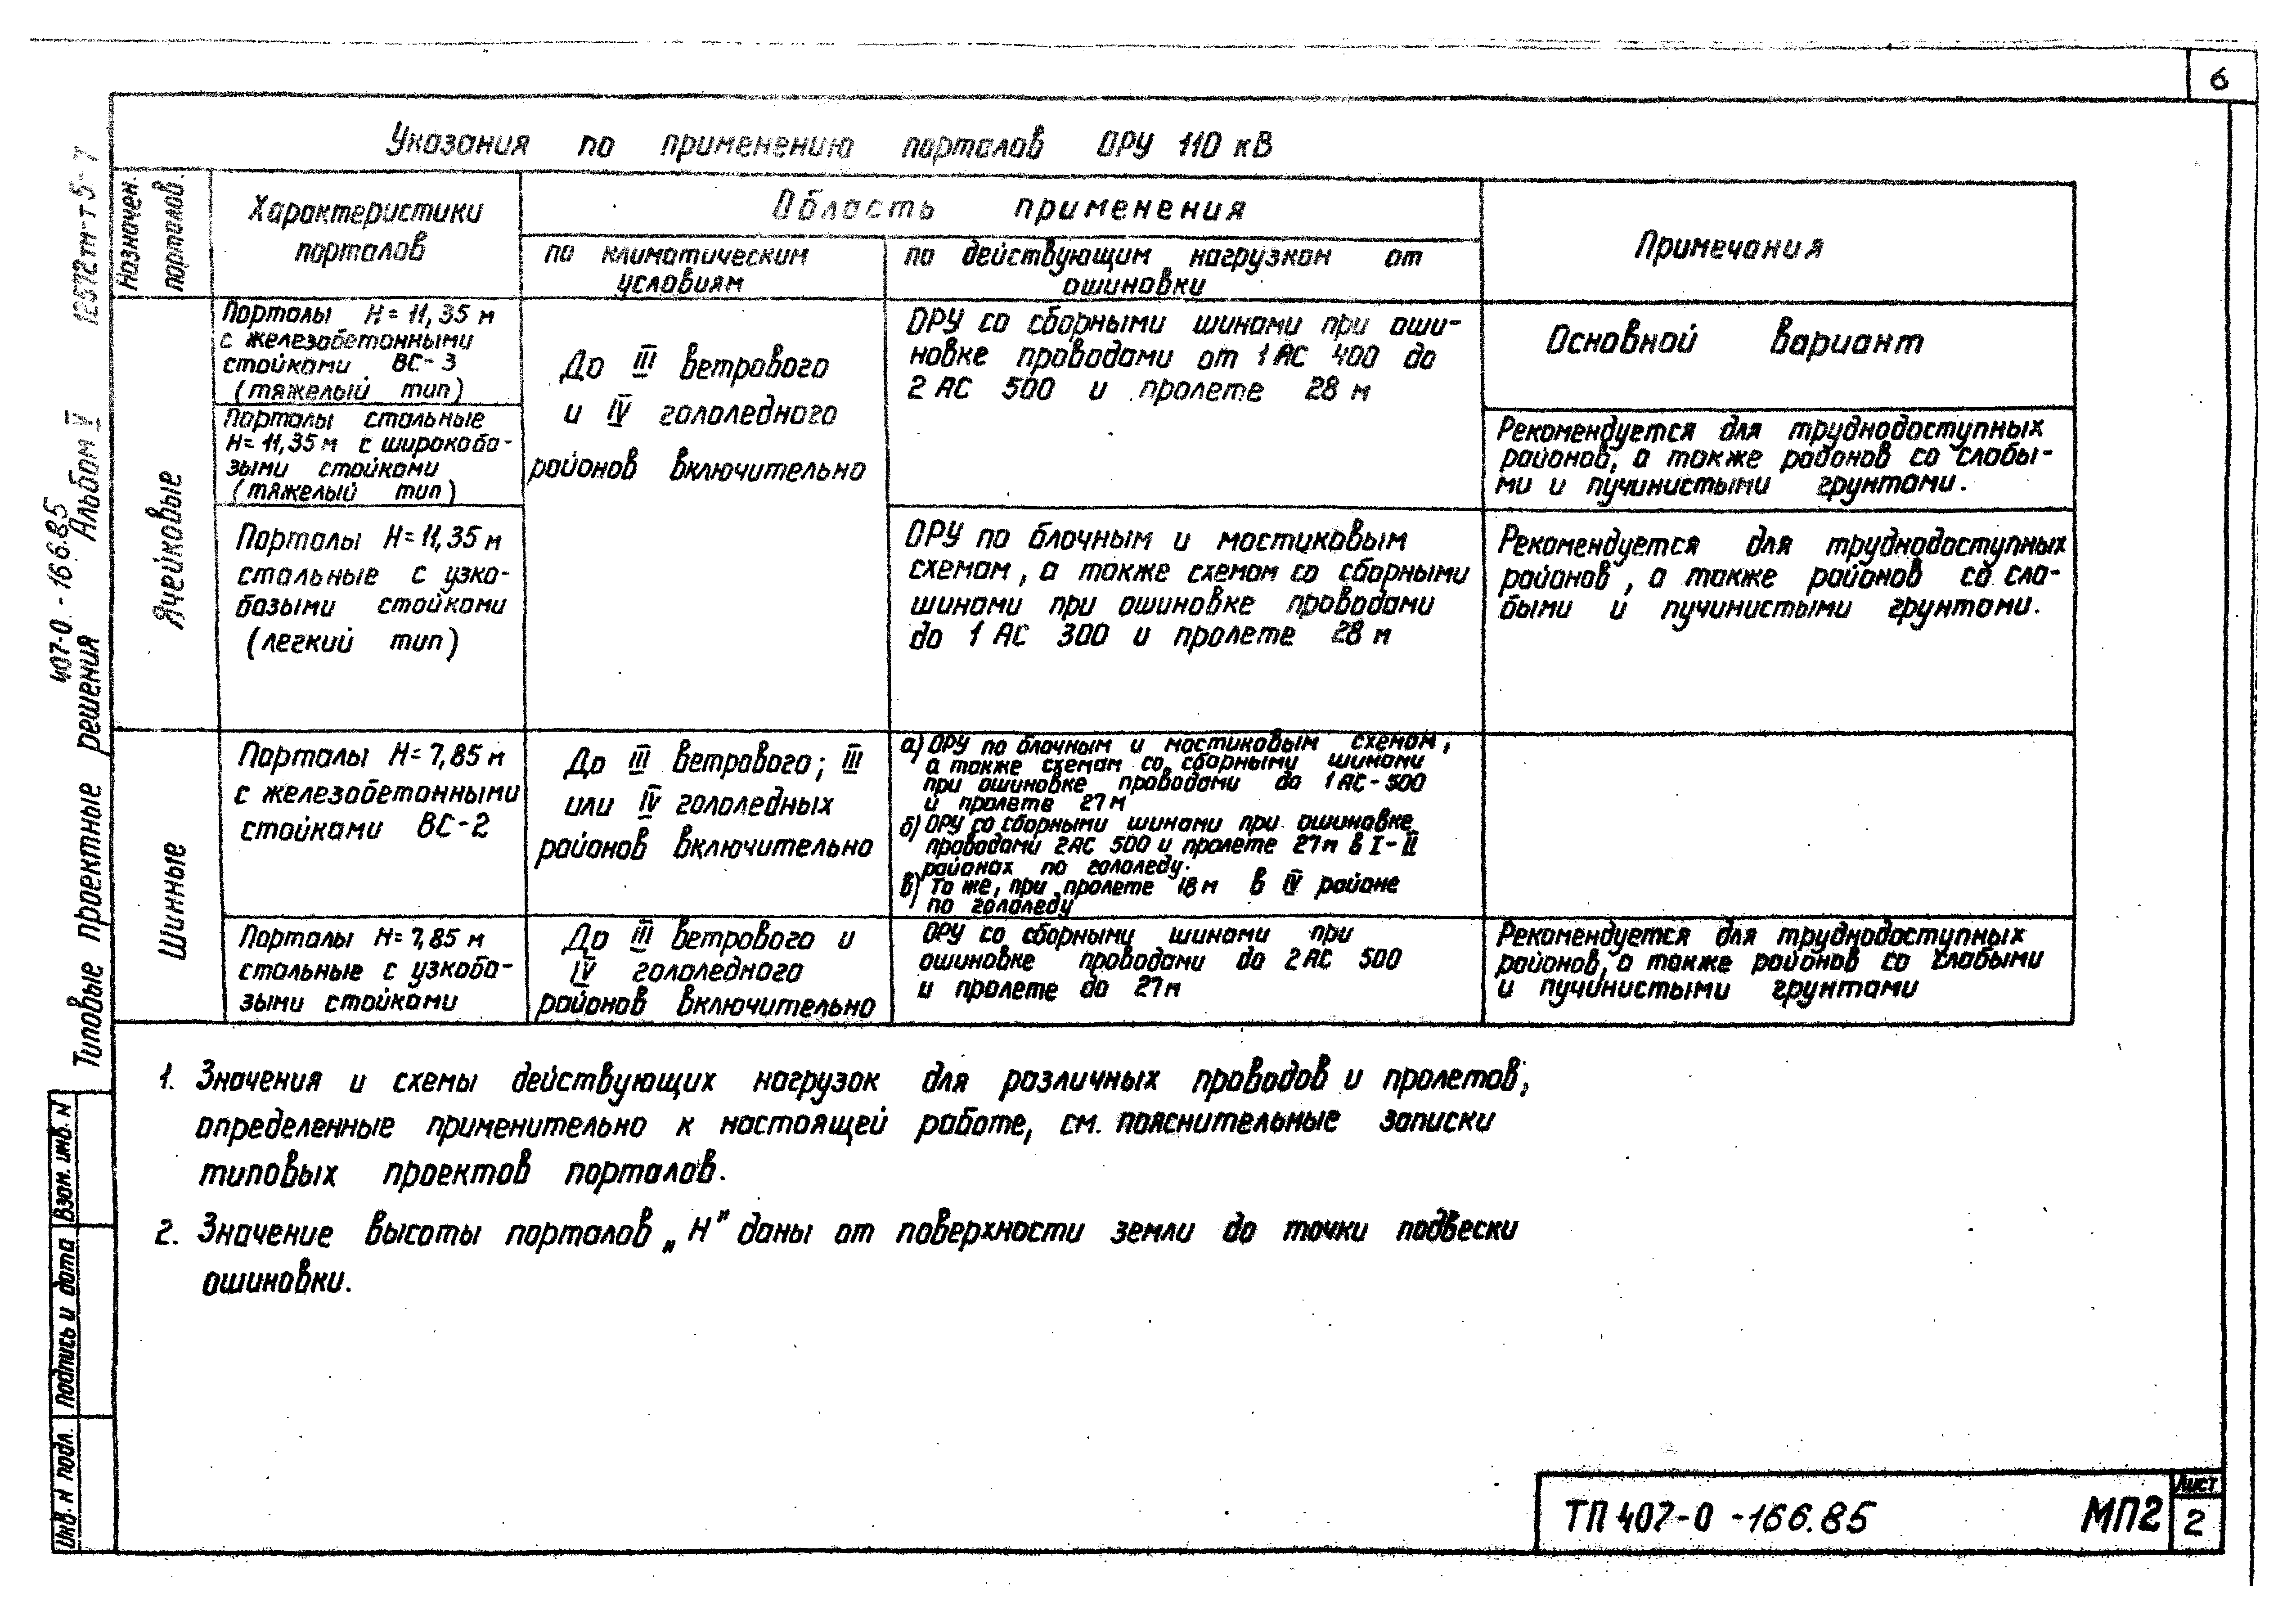 6
Указания по применению порталов ОРУ 110 кВ
Назначен.
порталов.
Характеристики
порталов
Область применения
по климатическим
условиям
по действующим нагрузкам от
ошиновки
Примечания
Ячейковые
Порталы Н = 11,35 м
с железобетонными
стойками ВС-3
(тяжелый тип)
До III ветрового
и IV гололедного
районов включительно
ОРУ со сборными шинами при оши-
новке проводами от 1 АС 400 до
2 АС 500 и пролете 28 м
Основной вариант
Порталы стальные
Н = 11,35 м с широкоба-
зыми стойками
(тяжелый тип)
Рекомендуется для труднодоступных
районов, а также радонов со слабы-
ми и пучинистыми грунтами.
Порталы Н = 11,35 м
стальные с узко-
базыми стойками
(легкий тип)
ОРУ по блочным и мостиковым
схемам, а также схемам со сборными
шинами при ошиновке проводами
до 1 АС 300 и пролете 28 м
Рекомендуется для труднодоступных
районов, а также районов со сла-
быми и пучинистыми грунтами.
Шинные
Порталы Н = 7,85 м
с железобетонными
стойками ВС-2
До III ветрового; III
или IV гололедных
районов включительно
а) ОРУ по блочным и мостиковым схемам,
а также схемам со сборными шинами
при ошиновке проводами до 1 АС-500
и пролете 27 м
б) ОРУ со сборными шинами при ошиновке
проводами 2АС 500 и пролете 27 м в I-II
районах по гололеду.
в) То же, при пролете 18 м в IV районе
по гололеду
Порталы Н = 7,85 м
стальные с узкоба-
зыми стойками
До III ветрового и
IV гололедного
районов включительно
ОРУ со сборными шинами при
ошиновке проводами до 2 АС 500
и пролете до 27 м
Рекомендуется для труднодоступных
районов, а также районов со слабыми
и пучинистыми грунтами
1. Значения и схемы действующих нагрузок для различных проводов и пролетов,
определенные применительно к настоящей работе, см. пояснительные записки
типовых проектов порталов.
2. Значение высоты порталов „Н" даны от поверхности земли до точки подвески
ошиновки.
12572тм-т5-7
407-0-166.85
Типовые проектные решения Альбом V
Взам. инв. N
Подпись и дата
Инв. N подл.
ТП 407-0-166.85 МП2
Лист
2